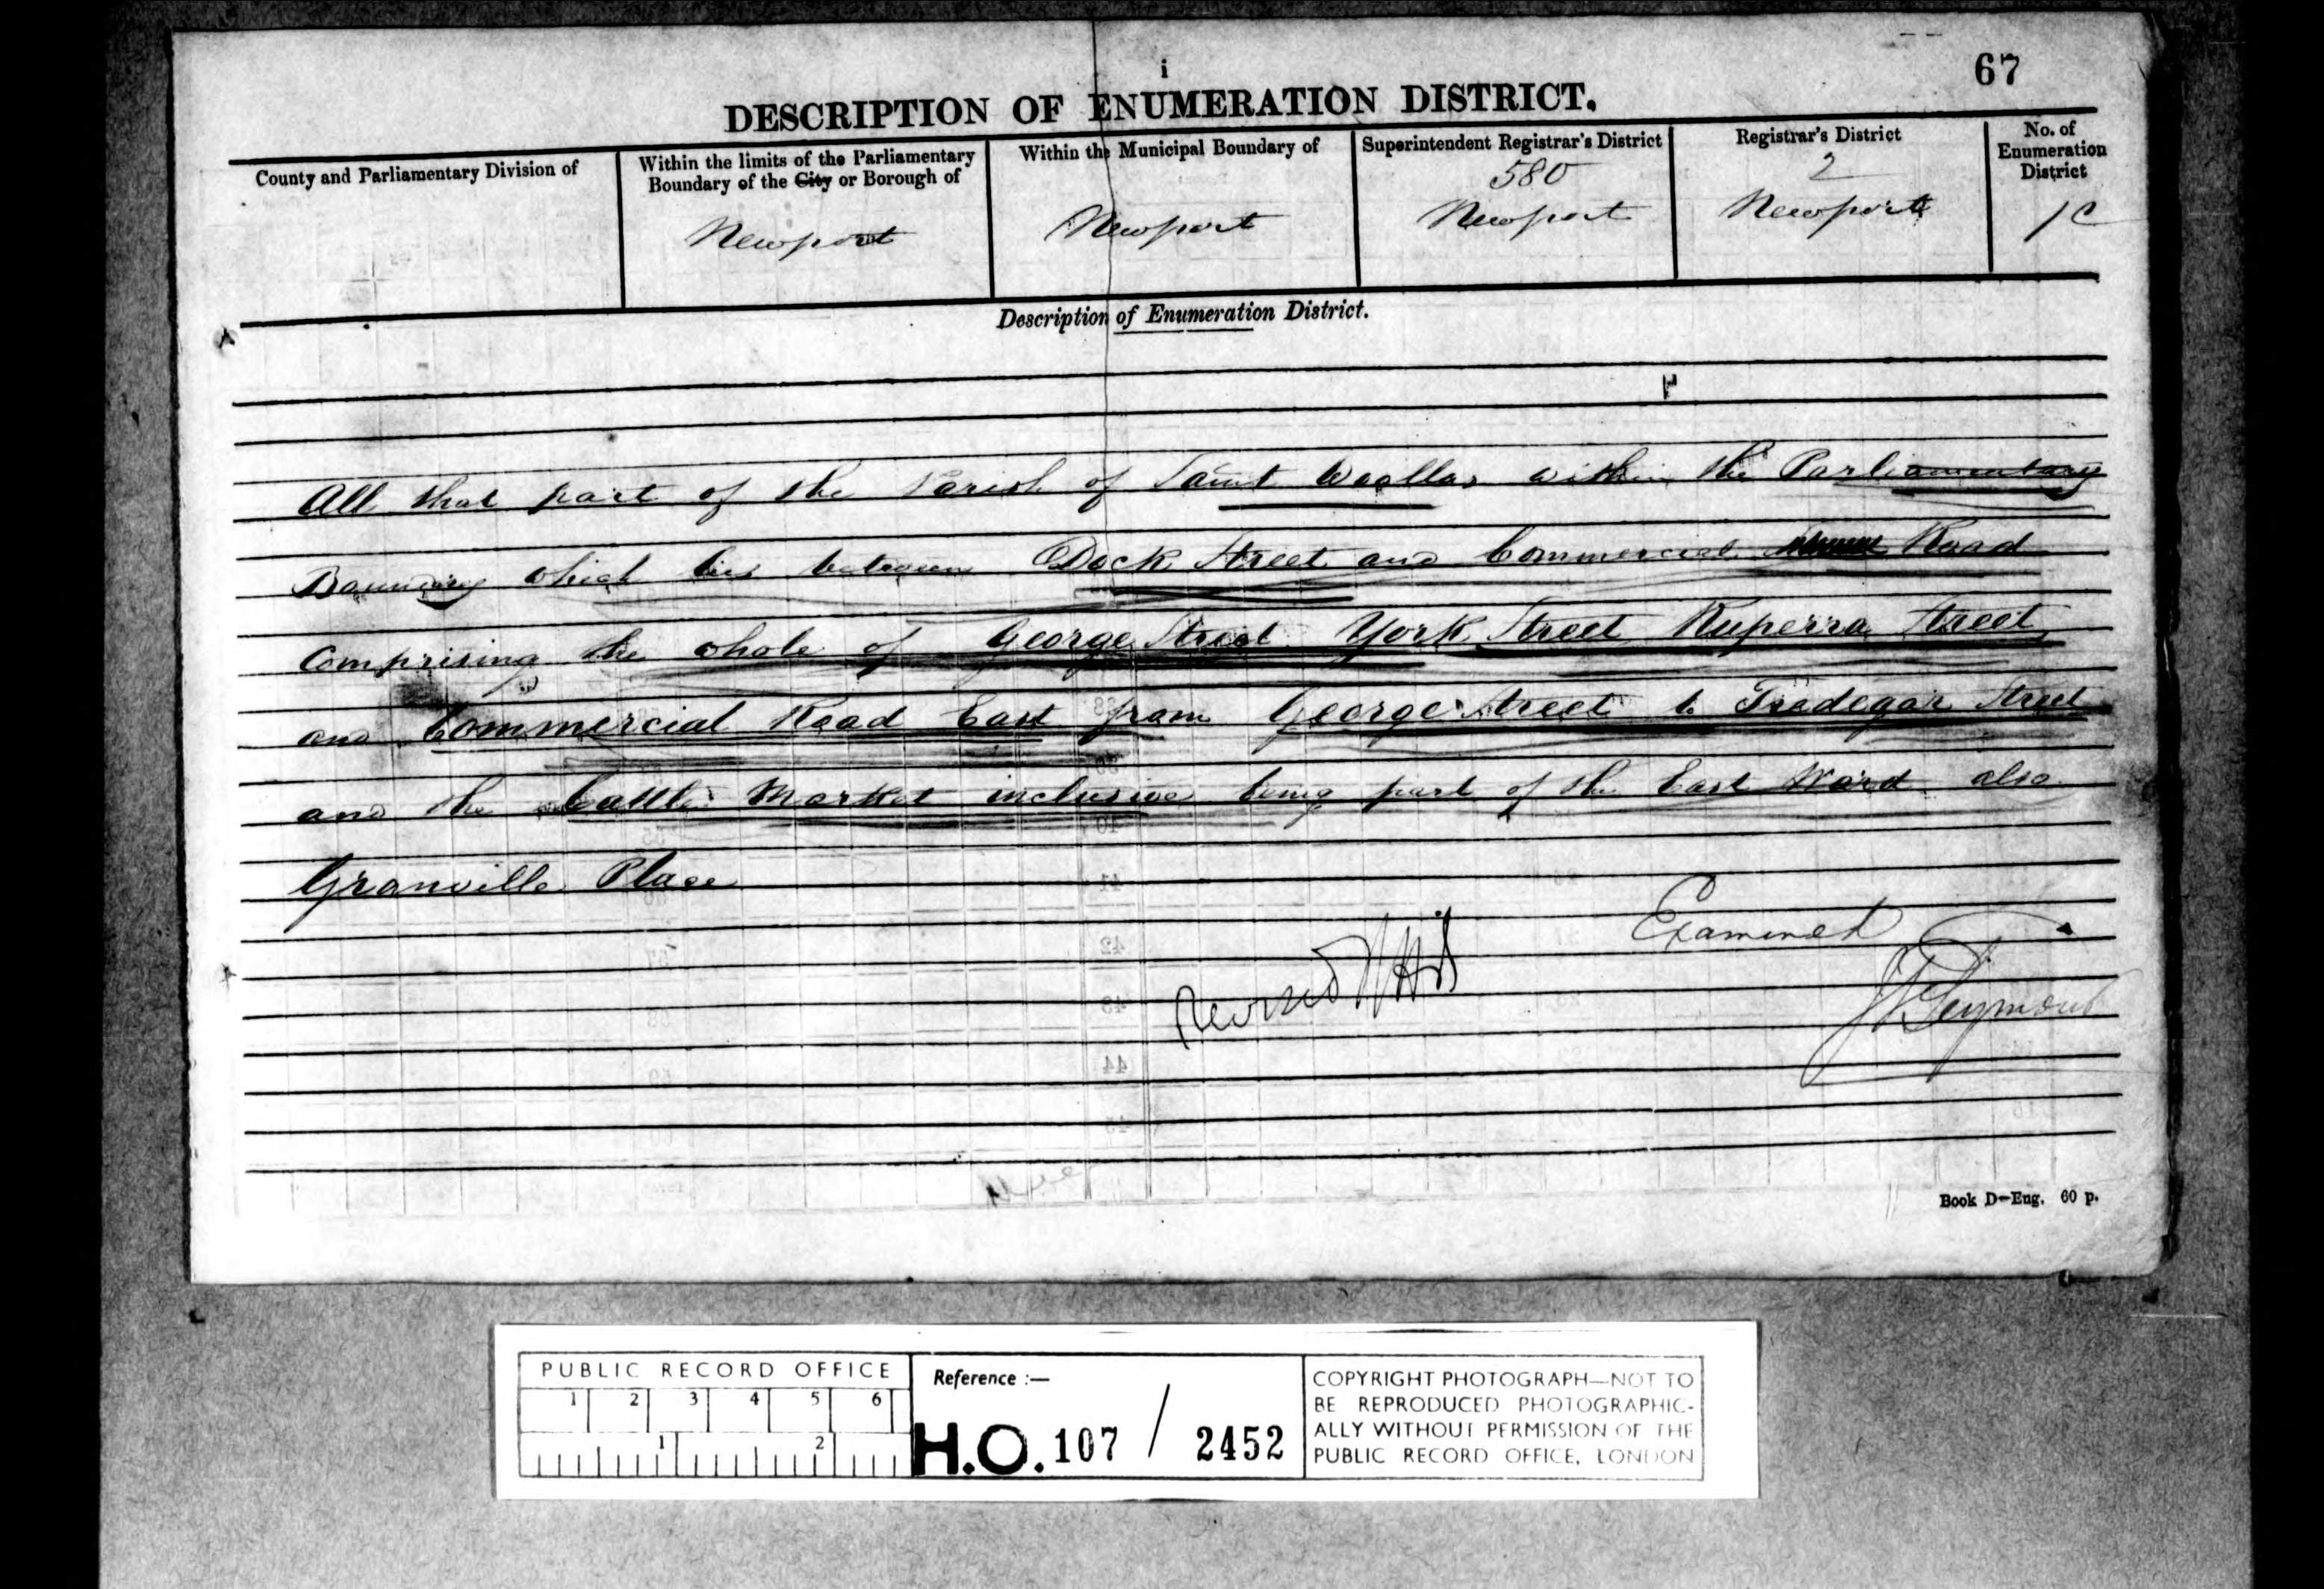 67
i
DESCRIPTION OF ENUMERATION DISTRICT.
County and Parliamentary Division of
Within the limits of the Parliamentary Boundary of the City or Borough of
Newport
Within the Municipal Boundary of
Newport
Superintendent Registrar's District
580
Newport
Registrar's District
2
Newport
No. of Enumeration District
1c
Description of Enumeration District.
All that part of the Parish of Saint Woollos within the Parliamentary
Boundary which lies between Dock Street and Commercial Road
Comprising the whole of George Street York Street Ruperra Street
and Commercial Road East from George Street to Tredegar Street
and the Cattle Market inclusive being part of the East Ward also
Granville Place
Examined
Revised
Seymour
Book D—Eng. 60 p.
PUBLIC RECORD OFFICE
1 2 3 4 5 6
1 2
Reference :—
H.O. 107 / 2452
COPYRIGHT PHOTOGRAPH—NOT TO
BE REPRODUCED PHOTOGRAPHIC-
ALLY WITHOUT PERMISSION OF THE
PUBLIC RECORD OFFICE, LONDON